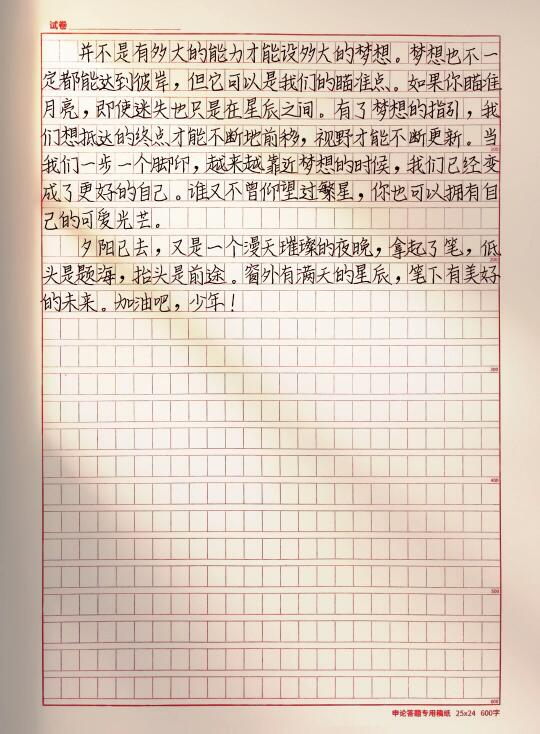 试卷
并不是有多大的能力才能设多大的梦想。梦想也不一
定都能达到彼岸，但它可以是我们的瞄准点。如果你瞄准
月亮，即使迷失也只是在星辰之间。有了梦想的指引，我
们想抵达的终点才能不断地前移，视野才能不断更新。当
我们一步一个脚印，越来越靠近梦想的时候，我们已经变
成了更好的自己。谁又不曾仰望过繁星，你也可以拥有自
己的可爱光芒。
夕阳已去，又是一个漫天璀璨的夜晚，拿起了笔，低
头是题海，抬头是前途。窗外有满天的星辰，笔下有美好
的未来。加油吧，少年！
100
200
300
400
500
600
申论答题专用稿纸 25x24 600字